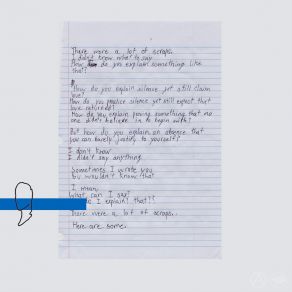 There were a lot of scraps.
I didn't know what to say.
How do you explain something like
that?
How do you explain silence yet still claim
love?
How do you practice silence yet still expect that
love returned?
How do you explain proving something that no
one didn't believe in to begin with?
But how do you explain an absence that
you can barely justify to yourself?
I don't know
I didn't say anything.
Sometimes I wrote you
You wouldn't know that
I mean,
What can I say?
do I explain that??
There were a lot of scraps.
Here are some.